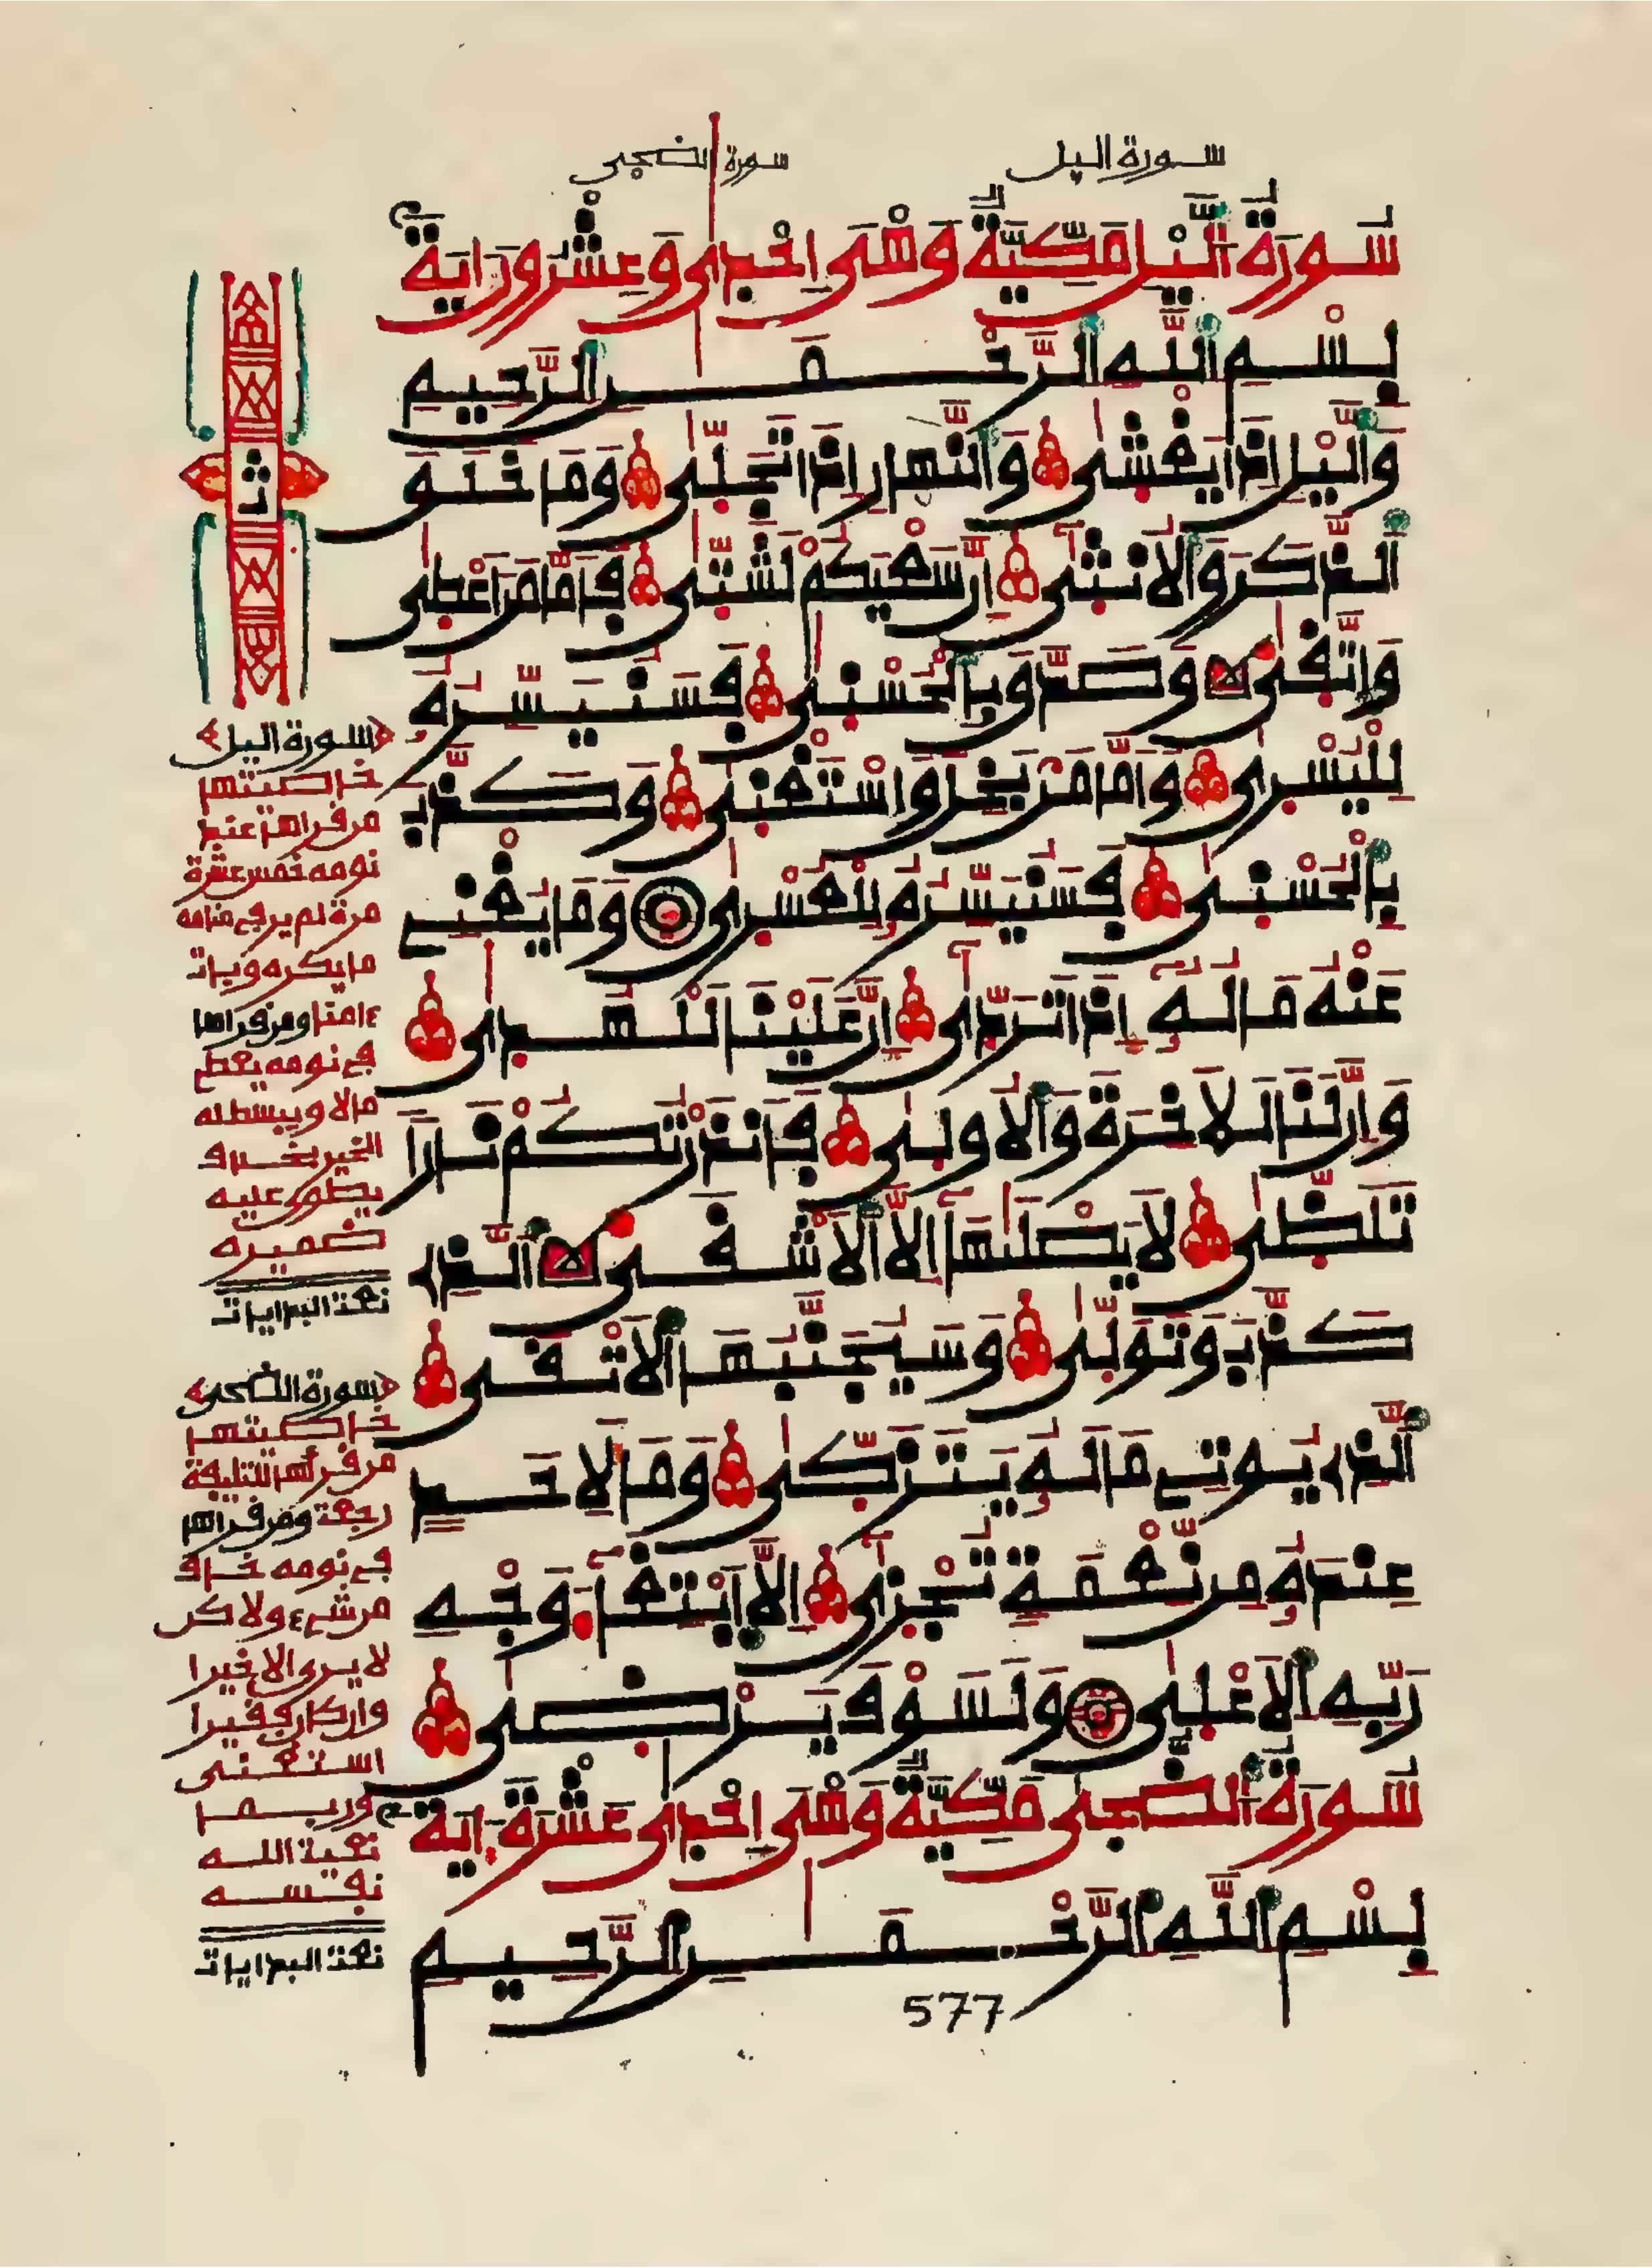 سورة اليل
سورة الضحى
سُورَةُ اَلَّيْلِ مَكِّيَّةٌ وَهْىَ اِحْدٰى وَعِشْرُونَ اٰيَةً
بِسْمِ اِ۬للَّهِ اِ۬لرَّحْمَٰنِ اِ۬لرَّحِيمِ
وَاليْلِ إِذَا يَغْشٰى وَالنَّهٰارِ إِذَا تَجَلّٰى وَمَا خَلَقَ
اَ۬لذَّكَرَ وَالُانثٰىٓ إِنَّ سَعْيَكُمْ لَشَتّٰى فَأَمَّا مَنَ اَعْطٰى
وَاتَّقٰى وَصَدَّقَ بِالْحُسْنٰى فَسَنُيَسِّرُهُۥ
لِلْيُسْرٰى وَأَمَّا مَنۢ بَخِلَ وَاسْتَغْنٰى وَكَذَّبَ
بِالْحُسْنٰى فَسَنُيَسِّرُهُۥ لِلْعُسْرٰى وَمَا يُغْنِے
عَنْهُ مَالُهُۥٓ إِذَا تَرَدّٰىٓ إِنَّ عَلَيْنَا لَلْهُدٰى
وَإِنَّ لَنَا لَلَاخِرَةَ وَالُاولٰى فَأَنذَرْتُكُمْ نَاراً
تَلَظّٰى لَا يَصْلَىٰهَآ إِلَّا اَ۬لَاشْقَى اَ۬لذِے
كَذَّبَ وَتَوَلّٰى وَسَيُجَنَّبُهَا اَ۬لَاتْقَى
اَ۬لذِے يُوتِے مَالَهُۥ يَتَزَكّٰى وَمَا لِأَحَدٍ
عِندَهُۥ مِن نِّعْمَةٍ تُجْزٰىٓ إِلَّا اَ۪بْتِغَآءَ وَجْهِ
رَبِّهِ اِ۬لَاعْلٰى وَلَسَوْفَ يَرْضٰى
سُورَةُ اَلضُّحٰى مَكِّيَّةٌ وَهْىَ اِحْدٰى عَشْرَةَ ءَايَةً
بِسْمِ اِ۬للَّهِ اِ۬لرَّحْمَٰنِ اِ۬لرَّحِيمِ
577
ث
سورة اليل
خاصيتها
من قراها عند
نومه خمس عشرة
مرة لم ير في منامه
ما يكره وبات
ءامنا ومن قراها
في نومه يعطى
مالا ويبسط له
الخير بخلاف
يطوى عليه
ضميره
سورة الضحى
خاصيتها
من قرأها
ومن قراها
في نومه خاف
من شيء ولاكن
لا يرى الا خيرا
وان كان فقيرا
استغنى
وربما
الله
نفسه